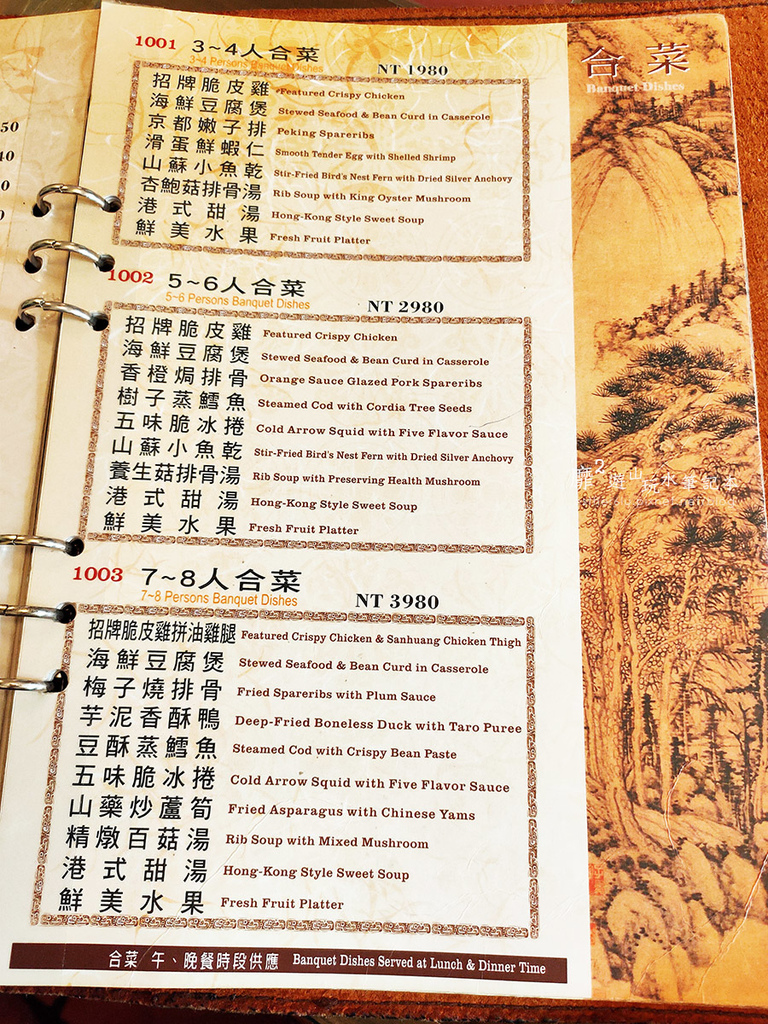 50
40
0
合菜
Banquet Dishes
1001 3~4人合菜 NT 1980
3~4 Persons Banquet Dishes
招牌脆皮雞 Featured Crispy Chicken
海鮮豆腐煲 Stewed Seafood & Bean Curd in Casserole
京都嫩子排 Peking Spareribs
滑蛋鮮蝦仁 Smooth Tender Egg with Shelled Shrimp
山蘇小魚乾 Stir-Fried Bird's Nest Fern with Dried Silver Anchovy
杏鮑菇排骨湯 Rib Soup with King Oyster Mushroom
港式甜湯 Hong-Kong Style Sweet Soup
鮮美水果 Fresh Fruit Platter
1002 5~6人合菜 NT 2980
5~6 Persons Banquet Dishes
招牌脆皮雞 Featured Crispy Chicken
海鮮豆腐煲 Stewed Seafood & Bean Curd in Casserole
香橙焗排骨 Orange Sauce Glazed Pork Spareribs
樹子蒸鱈魚 Steamed Cod with Cordia Tree Seeds
五味脆冰捲 Cold Arrow Squid with Five Flavor Sauce
山蘇小魚乾 Stir-Fried Bird's Nest Fern with Dried Silver Anchovy
養生菇排骨湯 Rib Soup with Preserving Health Mushroom
港式甜湯 Hong-Kong Style Sweet Soup
鮮美水果 Fresh Fruit Platter
1003 7~8人合菜 NT 3980
7~8 Persons Banquet Dishes
招牌脆皮雞拼油雞腿 Featured Crispy Chicken & Sanhuang Chicken Thigh
海鮮豆腐煲 Stewed Seafood & Bean Curd in Casserole
梅子燒排骨 Fried Spareribs with Plum Sauce
芋泥香酥鴨 Deep-Fried Boneless Duck with Taro Puree
豆酥蒸鱈魚 Steamed Cod with Crispy Bean Paste
五味脆冰捲 Cold Arrow Squid with Five Flavor Sauce
山藥炒蘆筍 Fried Asparagus with Chinese Yams
精燉百菇湯 Rib Soup with Mixed Mushroom
港式甜湯 Hong-Kong Style Sweet Soup
鮮美水果 Fresh Fruit Platter
合菜 午、晚餐時段供應 Banquet Dishes Served at Lunch & Dinner Time